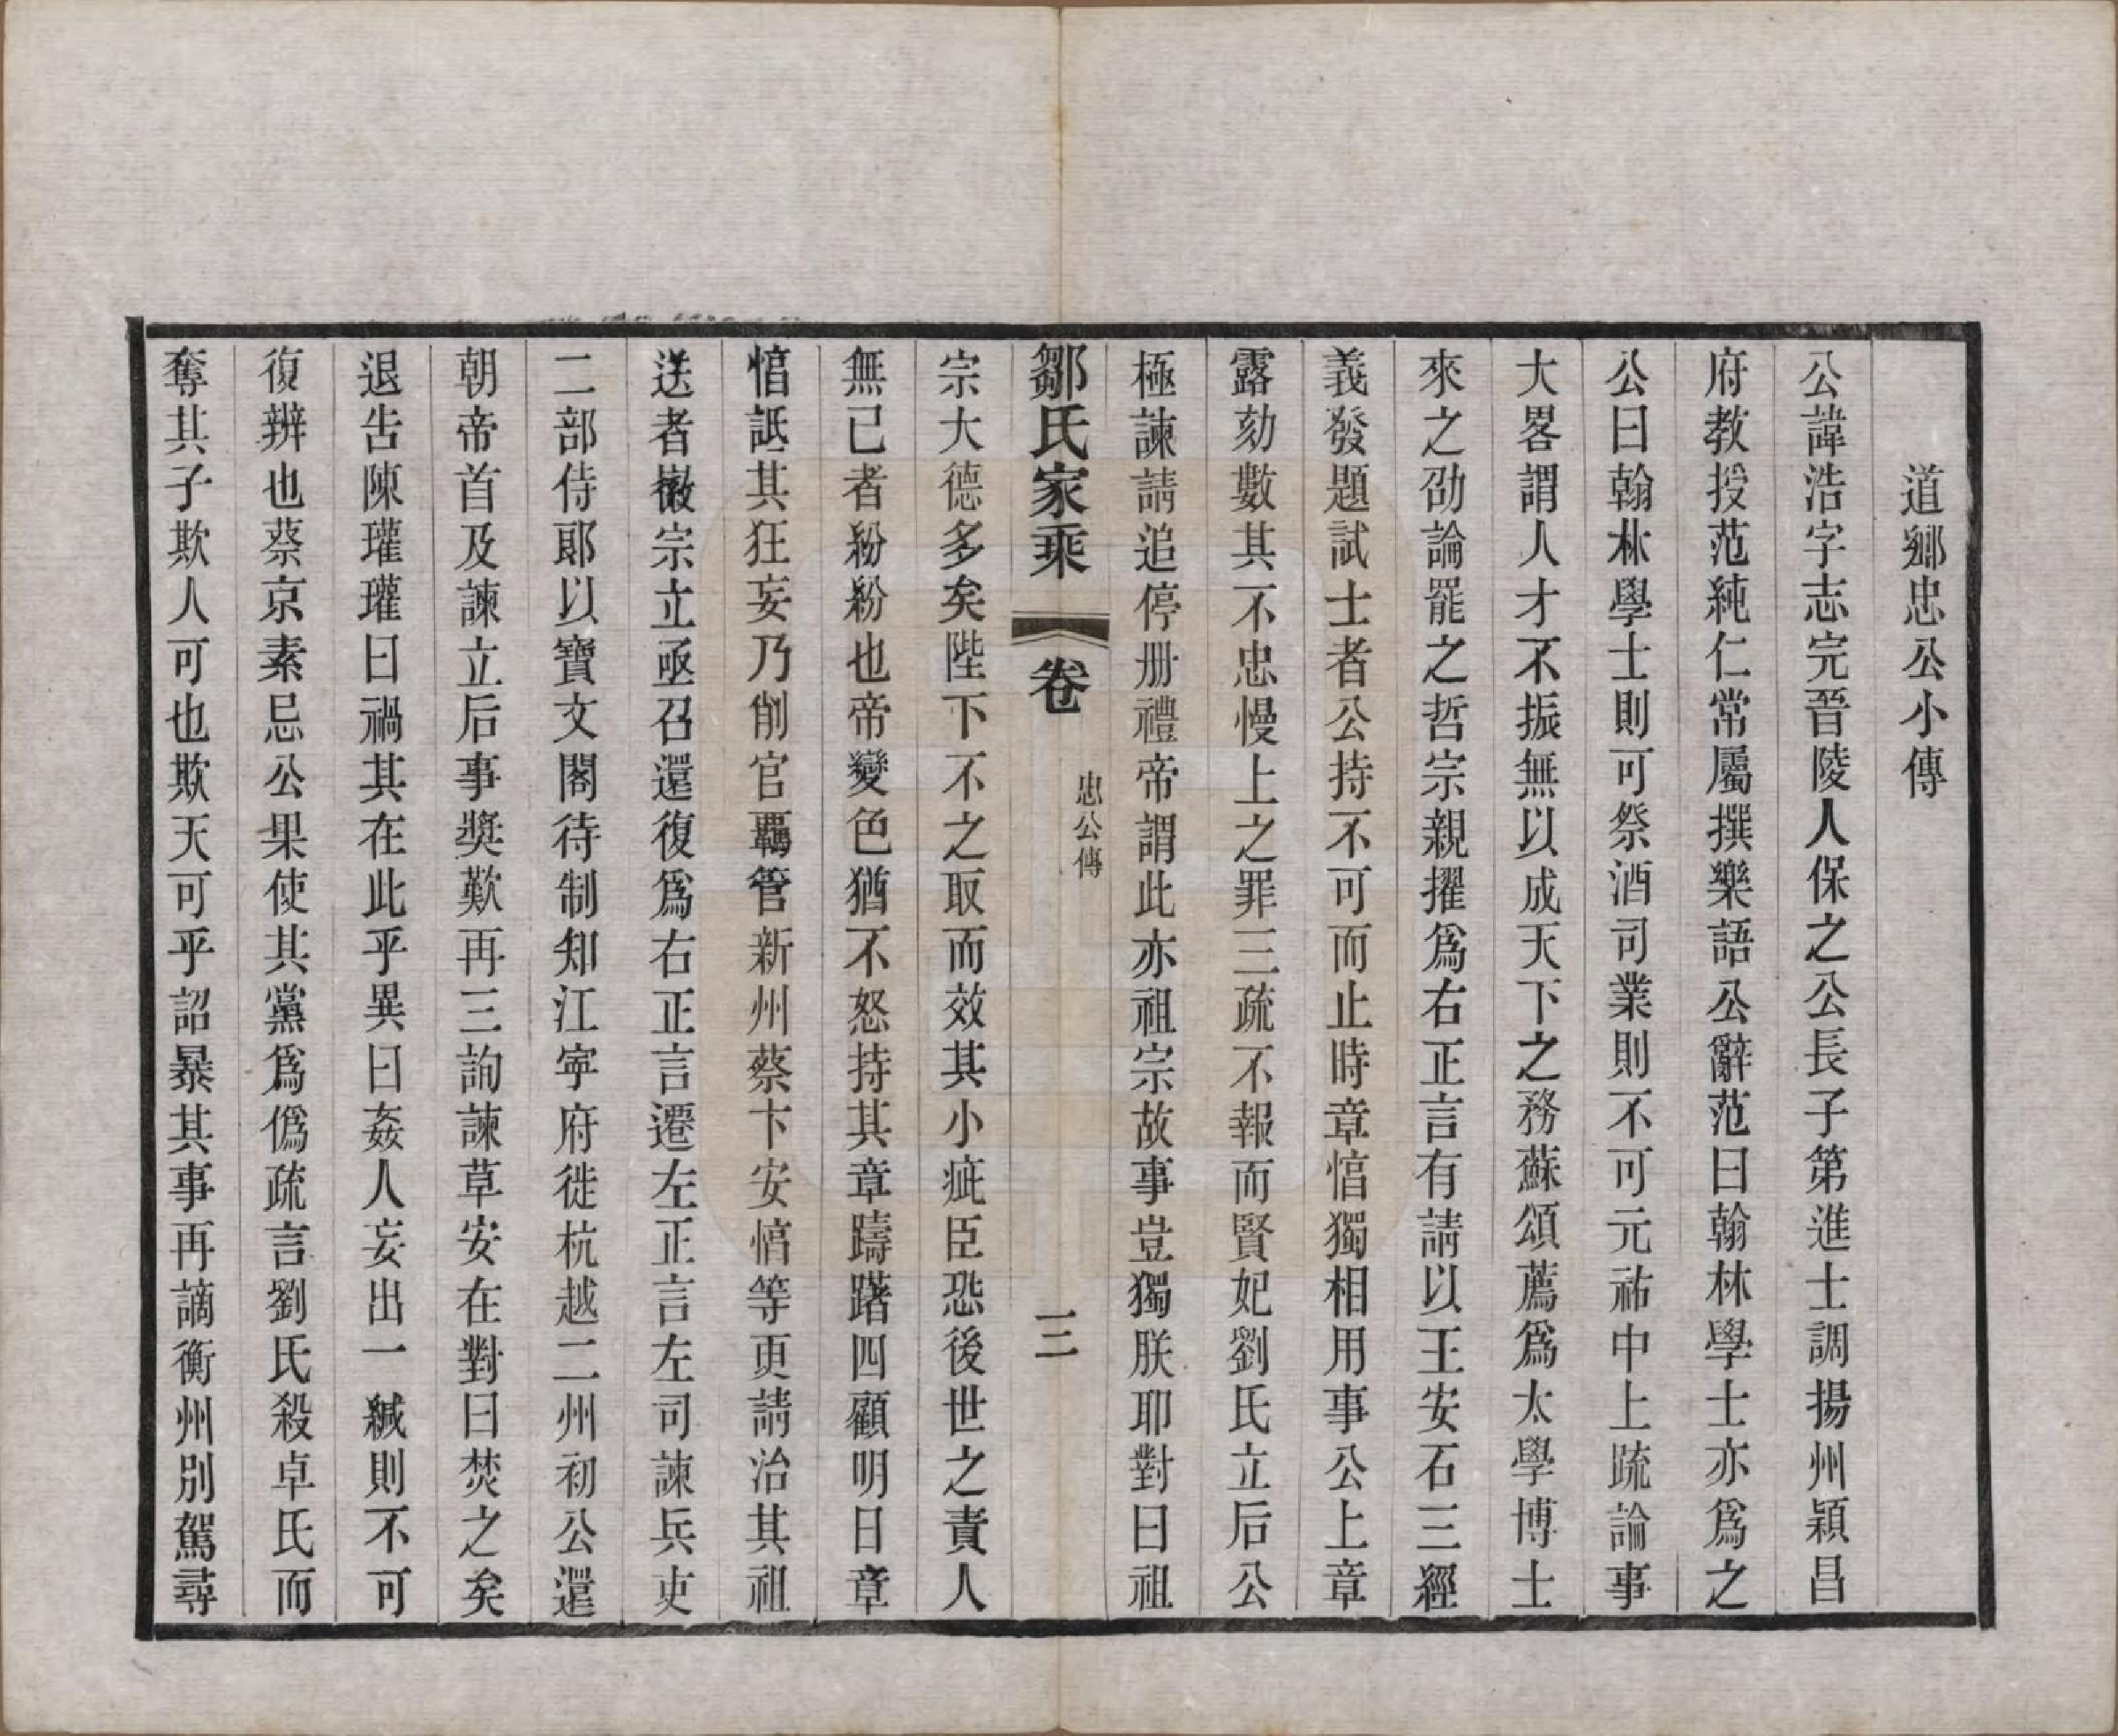 道鄉忠公小傳
公諱浩字志完晉陵人保之公長子第進士調揚州潁昌
府教授范純仁常屬撰樂語公辭范曰翰林學士亦爲之
公曰翰林學士則可祭酒司業則不可元祐中上疏論事
大畧謂人才不振無以成天下之務蘇頌薦爲太學博士
來之劭論罷之哲宗親擢爲右正言有請以王安石三經
義發題試士者公持不可而止時章惇獨相用事公上章
露劾數其不忠慢上之罪三疏不報而賢妃劉氏立后公
極諫請追停册禮帝謂此亦祖宗故事豈獨朕耶對曰祖
鄒氏家乘 卷 忠公傳 三
宗大德多矣陛下不之取而效其小疵臣恐後世之責人
無已者紛紛也帝變色猶不怒持其章躊躇四顧明日章
惇詆其狂妄乃削官羈管新州蔡卞安惇等更請治其祖
送者徽宗立亟召還復爲右正言遷左正言左司諫兵吏
二部侍郞以寶文閣待制知江寧府徙杭越二州初公還
朝帝首及諫立后事獎歎再三詢諫草安在對曰焚之矣
退告陳瓘瓘曰禍其在此乎異日姦人妄出一緘則不可
復辨也蔡京素忌公果使其黨爲僞疏言劉氏殺卓氏而
奪其子欺人可也欺天可乎詔暴其事再謫衡州別駕尋